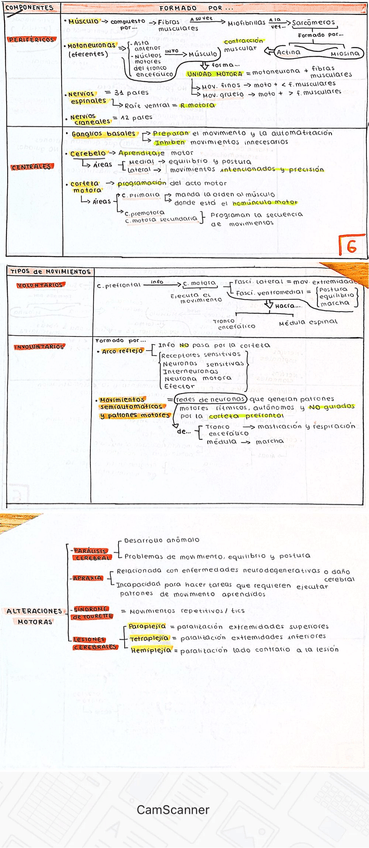 COMPONENTES
FORMADO POR...
PERIFÉRICOS
• Músculo → compuesto por... → Fibras musculares → a su vez → Miofibrillas → a la vez... → Sarcómeros
Formado por...
Actina Miosina
contracción muscular
• Motoneuronas (eferentes)
- Asta anterior
- Núcleos motores del tronco encefálico
info → Músculo
forma...
UNIDAD MOTORA = motoneurona + fibras musculares
Mov. finos → moto + < f. musculares
Mov. grueso → moto + > f. musculares
• Nervios espinales = 31 pares
Raíz ventral = R. motora
• Nervios craneales = 12 pares
CENTRALES
• Ganglios basales
Preparan el movimiento y la automatización
Inhiben movimientos innecesarios
• Cerebelo → Aprendizaje motor
Áreas
Medial → equilibrio y postura
Lateral → movimientos intencionados y precisión
• Corteza motora → programación del acto motor
Áreas
C. primaria → manda la orden al músculo
donde está el homúnculo motor
C. premotora
C. motora secundaria
Programan la secuencia de movimientos
6
TIPOS de MOVIMIENTOS
VOLUNTARIOS
C. prefrontal → info → C. motora
Ejecuta el movimiento
Fascí. lateral = mov. extremidades
Fascí. ventromedial =
Postura
equilibrio
marcha
Hacia...
Tronco encefálico
Médula espinal
INVOLUNTARIOS
Formado por...
• Arco reflejo
Info NO pasa por la corteza
Receptores sensitivos
Neuronas sensitivas
Interneuronas
Neurona motora
Efector
• Movimientos semiautomáticos y patrones motores
= redes de neuronas que generan patrones
motores rítmicos, autónomos y NO guiados
por la corteza prefrontal
de...
Tronco encefálico → masticación y respiración
médula → marcha
ALTERACIONES MOTORAS
PARÁLISIS CEREBRAL
Desarrollo anómalo
Problemas de movimiento, equilibrio y postura
APRAXIA
Relacionada con enfermedades neurodegenerativas o daño cerebral
Incapacidad para hacer tareas que requieren ejecutar
patrones de movimiento aprendidos
SÍNDROME DE TOURETTE = Movimientos repetitivos / tics
LESIONES CEREBRALES
Paraplejia = paralización extremidades superiores
Tetraplejia = paralización extremidades inferiores
Hemiplejia = paralización lado contrario a la lesión
CamScanner